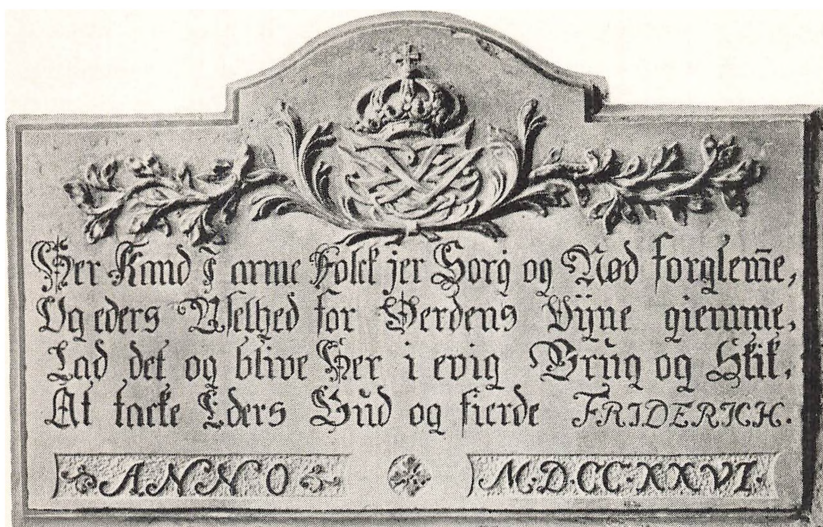 Her Kand I arme Folck jer Sorg og Nød forglem̄e,
Og eders Uselhed for Verdens Øyne giemme,
Lad det og blive Her i evig Brug og Skik,
At tacke Eders Gud og fierde FRIDERICH.
ANNO M·D·CC·XXVI·